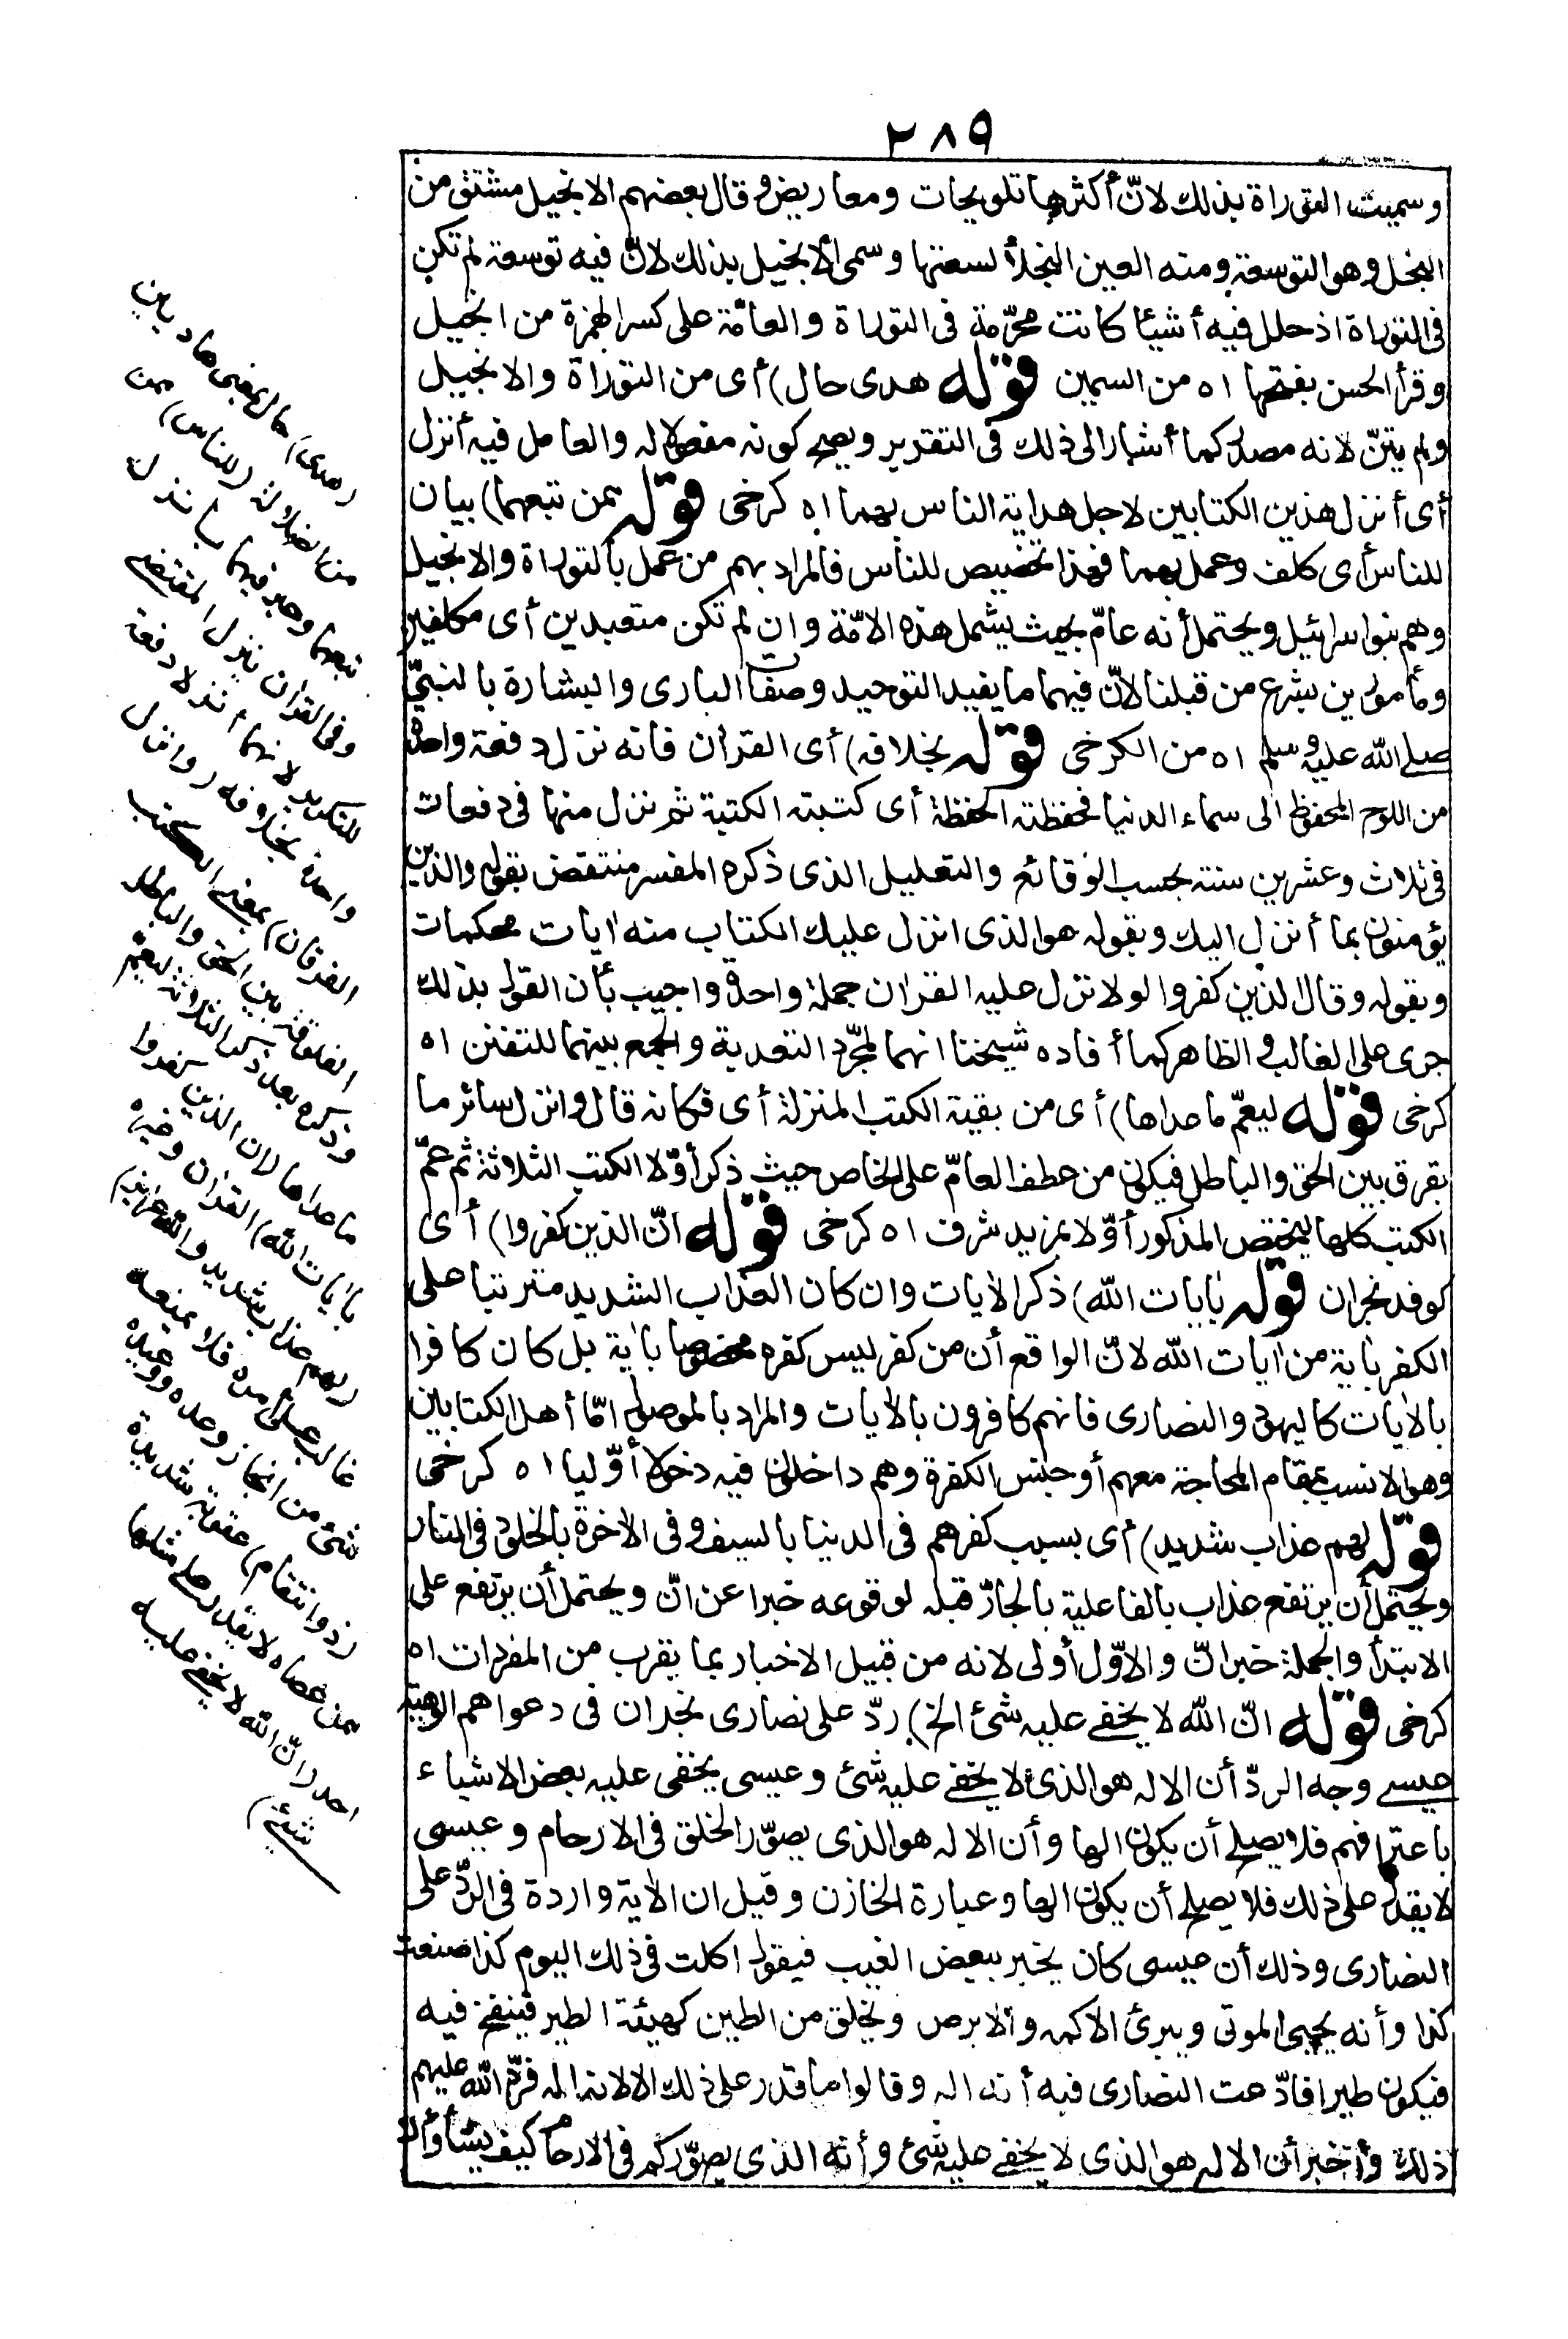 ٢٨٩
وسميت التوراة بذلك لانّ أكثرها تلويحات ومعاريض وقال بعضهم الانجيل مشتق من
النجل وهو التوسعة ومنه العين النجلأ لسعتها وسمى ألانجيل بذلك لانّ فيه توسعة لم تكن
فى التوراة اذ حلل فيه أشيئا كانت محرّمة فى التوراة والعامّة على كسر الهمزة من انجيل
وقرأ الحسن بفتحها اه من السمين قوله هدى حال) أى من التوراة والانجيل
ولم يثنّ لانه مصدر كما أشار الى ذلك فى التقدير ويصح كونه مفعولا له والعامل فيه أنزل
أى أنزل هذين الكتابين لاجل هداية الناس بهما اه كرخى قوله ممن تبعهما) بيان
للناس أى كلف وعمل بهما فهذا تخصيص للناس فالمراد بهم من عمل بالتوراة والانجيل
وهم بنوا سرائيل ويحتمل أنه عامّ بحيث يشمل هذه الامّة وان لم تكن متعبدين أى مكلفين
ومأمورين بشرع من قبلنا لانّ فيهما ما يفيد التوحيد وصفات البارى والبشارة بالنبيّ
صلى الله عليه وسلم اه من الكرخى قوله بخلافه) أى القران فانه نزل دفعة واحدة
من اللوح المحفوظ الى سماء الدنيا فحفظته الحفظة أى كتبته الكتبة ثم نزل منها فى دفعات
فى ثلاث وعشرين سنة بحسب الوقائع والتعليل الذى ذكره المفسر منتقض بقوله والذين
يؤمنون بما أنزل اليك وبقوله هو الذى انزل عليك الكتاب منه ايات محكمات
وبقوله وقال الذين كفروا لولا نزل عليه القران جملة واحدة واجيب بأن القول بذلك
جرى على الغالب و الظاهر كما أفاده شيخنا انهما لمجرّد التعدية والجمع بينهما للتفنن اه
كرخى قوله ليعمّ ما عداها) أى من بقية الكتب المنزلة أى فكانه قال وانزل سائر ما
يفرق بين الحق والباطل فيكون من عطف العامّ على الخاص حيث ذكر أوّلا الكتب الثلاثة ثم عمّ
الكتب كلها ليختص المذكور أوّلا بمزيد شرف اه كرخى قوله انّ الذين كفروا) أى
كوفد نجران قوله بايات الله) ذكر الايات وان كان العذاب الشديد مترتبا على
الكفر باية من ايات الله لانّ الواقع أن من كفر ليس كفره مخصوصا باية بل كان كافرا
بالايات كاليهود والنصارى فانهم كافرون بالايات والمراد بالموصول امّا أهل الكتابين
وهو الانسب بمقام المحاجة معهم أو جنس الكفرة وهم داخلون فيه دخولا أوّليا اه كرخى
قوله لهم عذاب شديد) أى بسبب كفرهم فى الدنيا بالسيف وفى الاخرة بالخلود فى النار
ويحتمل أن يرتفع عذاب بالفاعلية بالجارّ قبله لوقوعه خبرا عن انّ ويحتمل أن يرتفع على
الابتدأ والجملة خبر انّ والاوّل أولى لانه من قبيل الاخبار بما يقرب من المفردات اه
كرخى قوله انّ الله لا يخفى عليه شئ الخ) ردّ على نصارى نجران فى دعواهم الوهية
عيسى وجه الردّ أن الاله هو الذى لا يخفى عليه شئ وعيسى يخفى عليه بعض الاشياء
باعترافهم فلا يصلح أن يكون الها وأن الاله هو الذى يصوّر الخلق فى الارحام وعيسى
لا يقدر على ذلك فلا يصلح أن يكون الها وعبارة الخازن وقيل ان الاية واردة فى الردّ على
النصارى وذلك أن عيسى كان يخبر ببعض الغيب فيقول اكلت فى ذلك اليوم كذا صنعت
كذا وأنه يحيى الموتى ويبرئ الاكمه والابرص ويخلق من الطين كهيئة الطير فينفخ فيه
فيكون طيرا فادّعت النصارى فيه أنه اله وقالوا ما قدر على ذلك الا لانه اله فردّ الله عليهم
ذلك وأخبر أن الاله هو الذى لا يخفى عليه شئ وأنه الذى يصوّركم فى الارحام كيف يشأ وأن
(هدى) حال بمعنى هاديين
من الضلالة (للناس) ممن
تبعهما وعبر فيهما بانزل
وفى القران بنزل المقتضى
للتكرير لانهما أنزلا دفعة
واحدة بخلافه (وانزل
الفرقان) بمعنى الكتب
الفارقة بين الحق والباطل
وذكره بعد ذكر الثلاثة ليعمّ
ما عداها (ان الذين كفروا
بايات الله) القران وغيره
(لهم عذاب شديد والله عزيز)
غالب على أمره فلا يمنعه
شئ من انجاز وعده ووعيده
(ذو انتقام) عقوبة شديدة
ممن عصاه لا يقدر على مثلها
احد (انّ الله لا يخفى عليه
شئ)